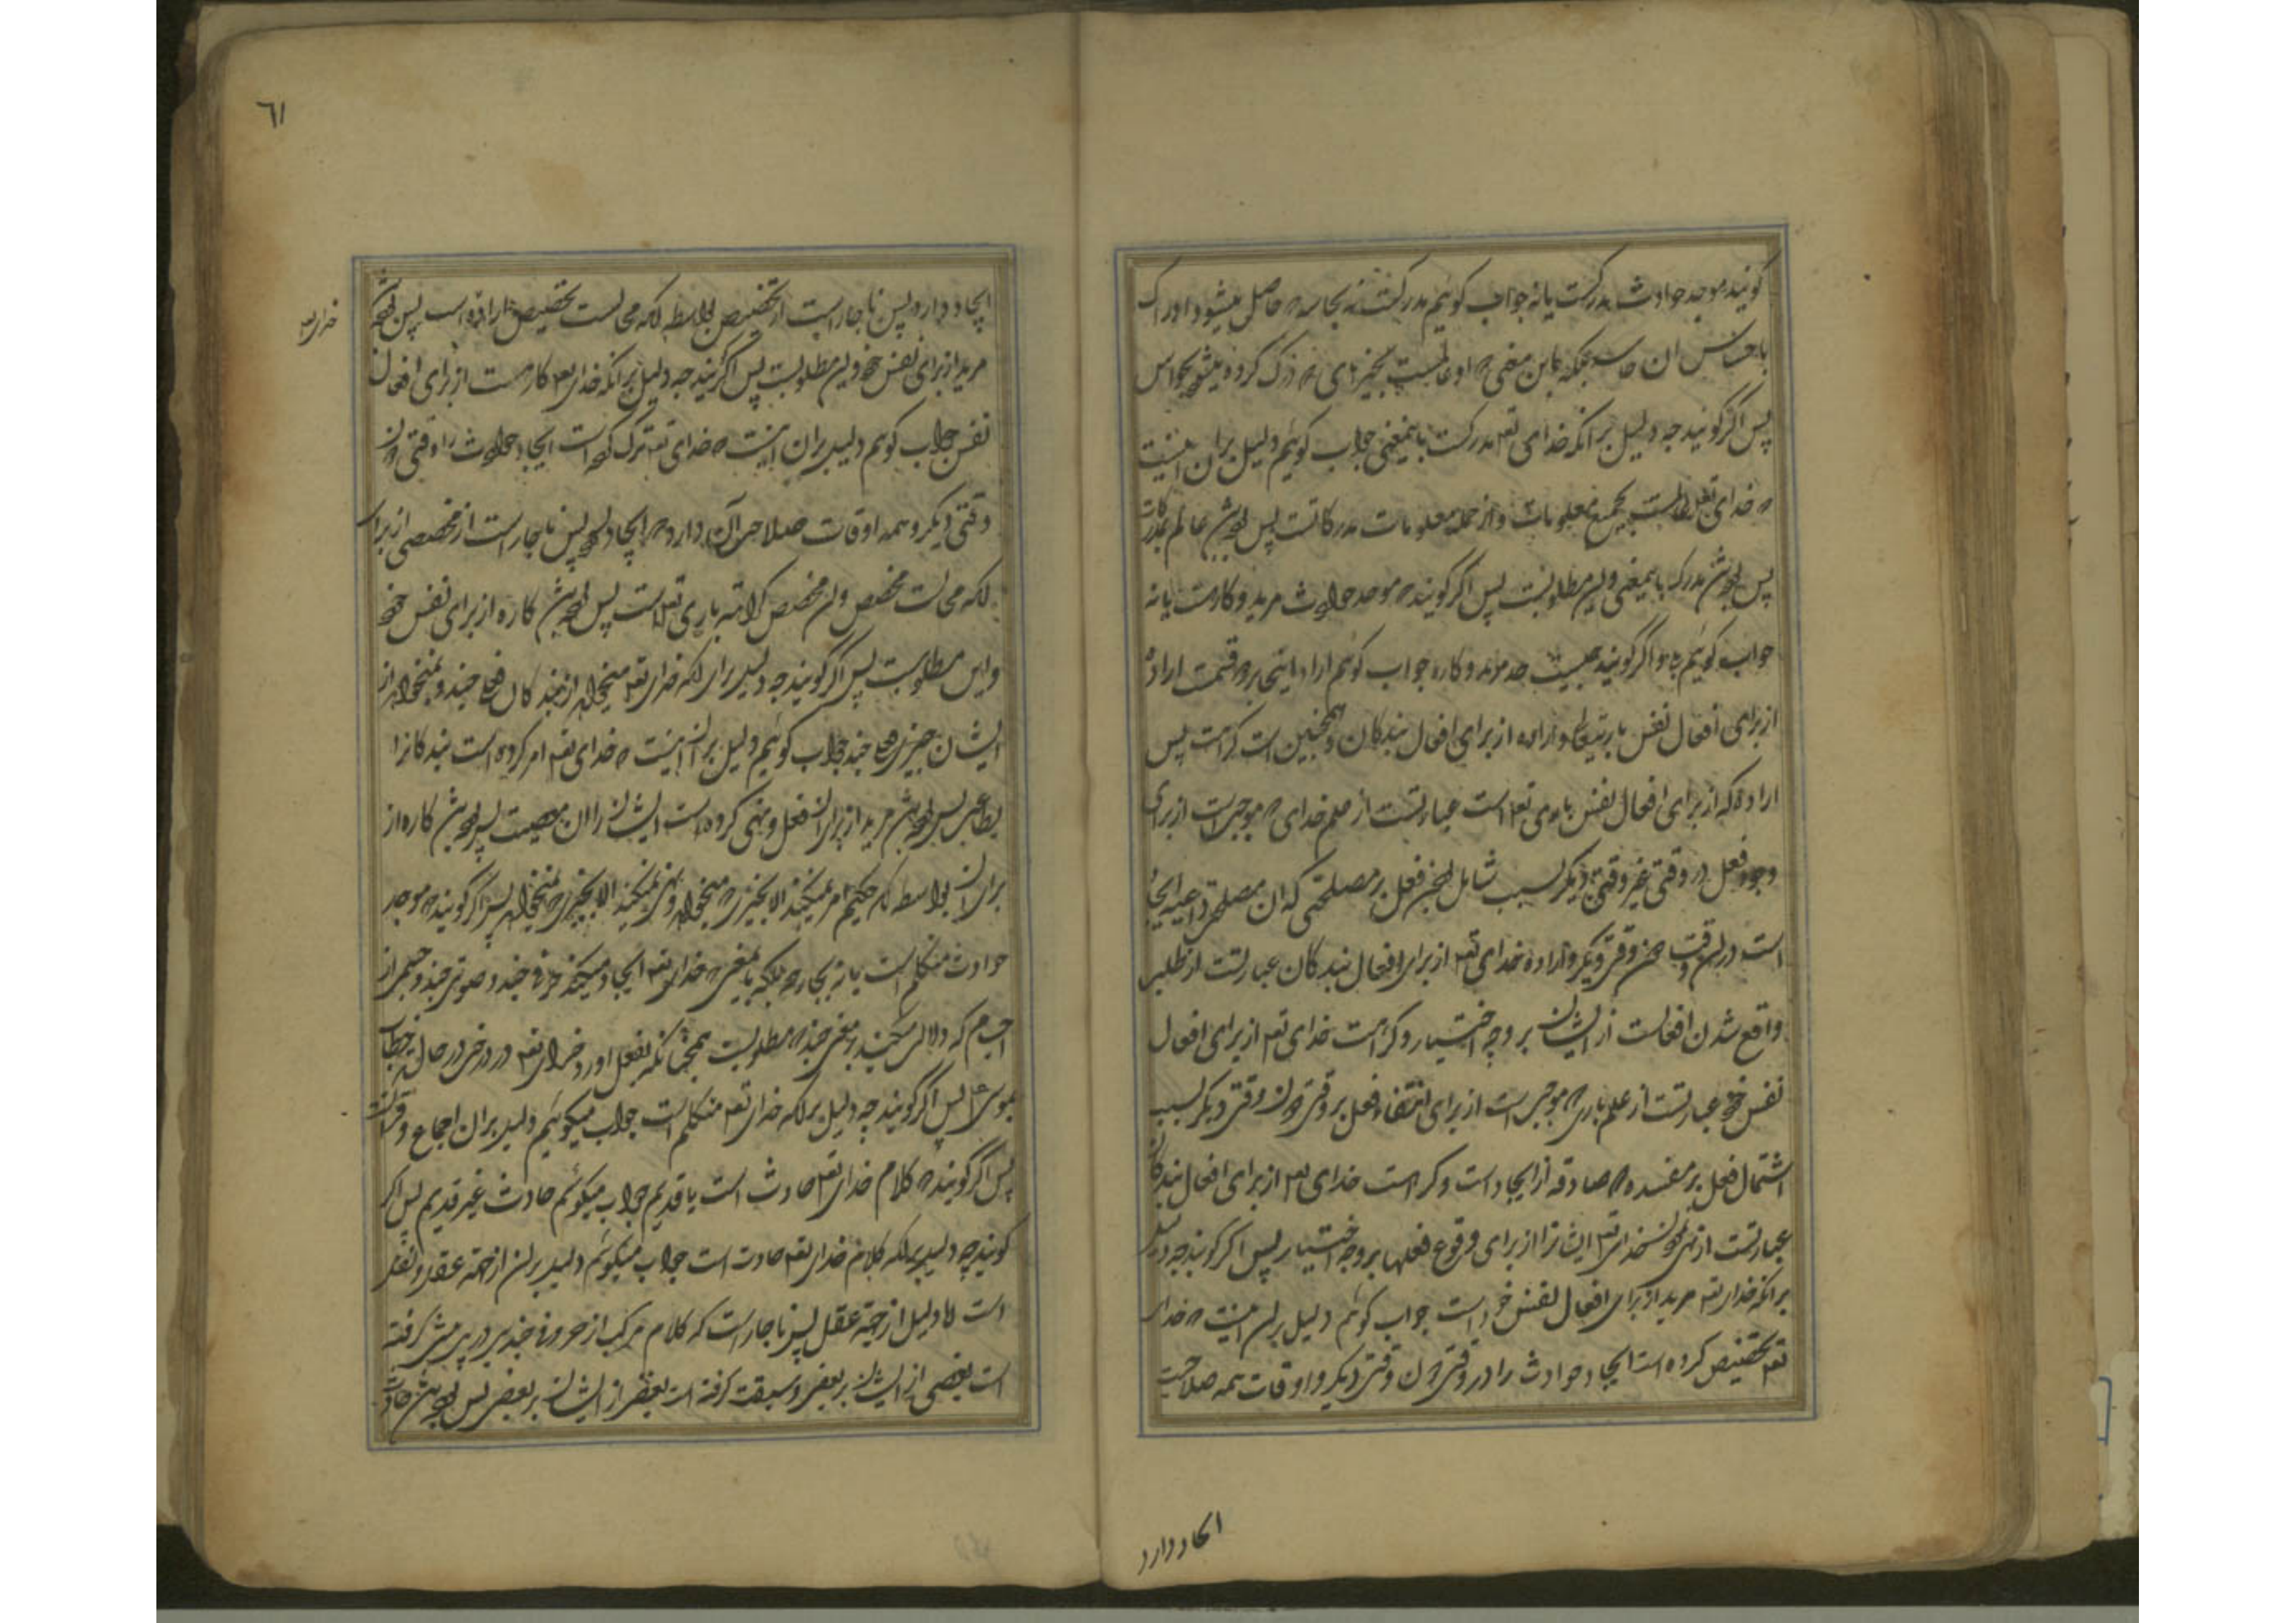 کویند موجد حوادث مدرکست یا نه جواب کوئیم مدرکست نه بحاسه حاصل میشود ادراک
باحساس ان حاسه بلکه باین معنی که او عالمست بچیزهای که درک کرده میشود بحواس
پس اگر کویند چه دلیل بر انکه خدای تعه مدرکست باینمعنی جواب کوئیم دلیل بران اینست
که خدای تعه عالمست بجمیع معلومات و از جمله معلومات مدرکاتست پس بوده باشد عالم بمدرکات
پس بوده باشد مدرک باینمعنی و این مطلوبست پس اگر کویند که موجد حوادث مرید و کارهست یا نه
جواب کوئیم اگر کویند چیست حد مرید و کاره جواب کوئیم اراده اینجا بر دو قسمت اراده
از برای افعال نفس باریتعالی و اراده از برای افعال بندکان و همچنین است کراهت پس
اراده که از برای افعال نفس باری تعه است عبارتست از علم خدای که موجب است از برای
وجود فعل در وقتی غیر وقتی دیکر بسبب شامل بودن فعل بر مصلحتی که ان مصلحت داعیه ایجاد
است در ان وقت دون وقتی دیکر و اراده خدای تعه از برای افعال بندکان عبارتست از طلب
واقع شدن افعالست از ایشان بر وجه اختیار و کراهت خدای تعه از برای افعال
نفس خود عبارتست از علم باری که موجب است از برای انتفاء فعل بر وقتی دون وقتی دیکر بسبب
اشتمال فعل بر مفسده که صارفه از ایجاد است و کراهت خدای تعه از برای افعال بندکان
عبارتست از نهی نمودن خدای تعه ایشانرا از برای وقوع فعلها بر وجه اختیار پس اکر کویند چه دلیل
برانکه خدای تعه مرید از برای افعال نفس خود است جواب کوئیم دلیل بران اینست که خدای
تعه تخصیص کرده است ایجاد حوادث را در وقتی دون وقتی دیکر و اوقات همه صلاحیت
ایجاد دارد
٦١
ایجاد دارد پس ناچار است از تخصیص بواسطه انکه محالست تخصیص
خدای تعه
مرید از برای نفس خود و این مطلوبست پس اگر کویند چه دلیل برانکه خدای تعه کارهست از برای افعال
نفس جواب کوئیم دلیل بران اینست که خدای تعه ترک کرده است ایجاد حوادث را وقتی دون
وقتی دیکر و همه اوقات صلاحیت آن دارد که ایجاد کند پس ناچار است از مخصصی از برای
انکه محالست مخصص و ان مخصص کراهته باری تعه است پس بوده باشد کاره از برای نفس خود
و این مطلوبست پس اگر کویند چه دلیل برای انکه خدای تعه میخواهد از بندکان فعلی چند و نمیخواهد از
ایشان چیزی چند جواب کوئیم دلیل بران اینست که خدای تعه امر کرده است بندکانرا
بطاعت پس بوده باشد مرید از برای ان فعل و نهی کرده است ایشانرا از ان معصیت پس بوده باشد کاره از
برای ان بواسطه انکه حکیم امر نمیکند الا بچیزی که میخواهد و نهی نمیکند الا بچیزی که نمیخواهد پس اگر کویند که موجد
حوادث متکلم است یا نه بلکه باینمعنی که خدای تعه ایجاد میکند حروفی چند و صوتی چند و جسمی از
اجسام که دلالت میکند بر معنی چند که مطلوبست همچنانکه بفعل اورد خدای تعه در درختی در حال خطاب
بموسی ع پس اگر کویند چه دلیل برانکه خدای تعه متکلم است جواب میکوئیم دلیل بران اجماع و قرانست
پس اگر کویند که کلام خدای تعه حادث است یا قدیم جواب میکوئیم حادث غیر قدیم پس اکر
کویند چه دلیل برانکه کلام خدای تعه حادث است جواب میکوئیم دلیل بران از جهته عقل و نقل
است اما دلیل از جهته عقل پس ناچار است که کلام مرکب از حروفی چند پی در پی پیشی کرفته
است بعضی از ایشان بر بعضی و سبقت کرفته است بعضی از ایشان بر بعضی پس بوده باشد حادث